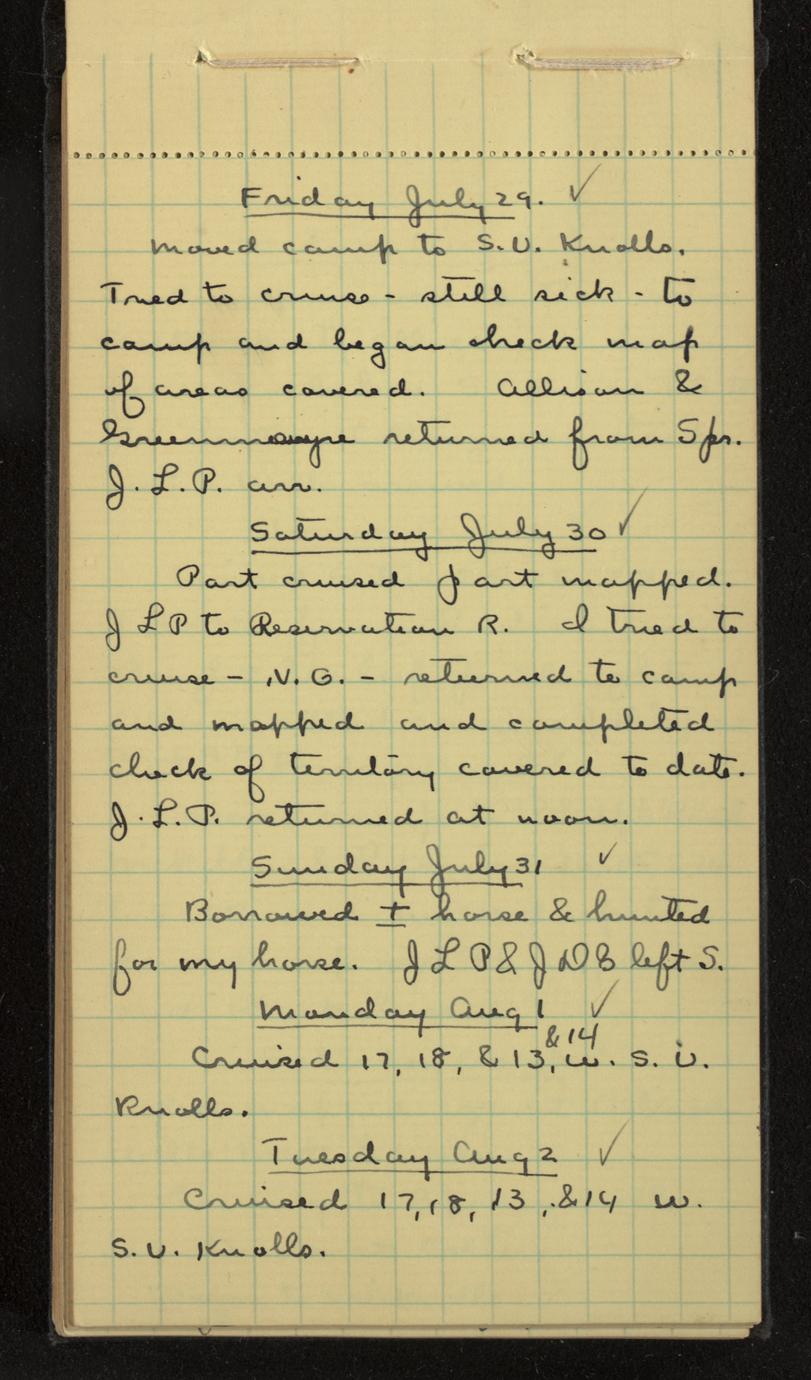 Friday July 29. ✓
Moved camp to S.U. Knolls.
Tried to cruise - still sick - to
camp and began check map
of areas covered. Allison &
returned from Spr.
J.L.P. arr.
Saturday July 30 ✓
Part cruised part mapped.
J L P to Reservation R. I tried to
cruise - N.G. - returned to camp
and mapped and completed
check of territory covered to date.
J.L.P. returned at noon.
Sunday July 31 ✓
Borrowed horse & hunted
for my horse. J L P & J D B left S.
Monday Aug 1 ✓
& 14
Cruised 17, 18, & 13, W. S. U.
Knolls.
Tuesday Aug 2 ✓
Cruised 17, 18, 13, & 14 W.
S.U. Knolls.